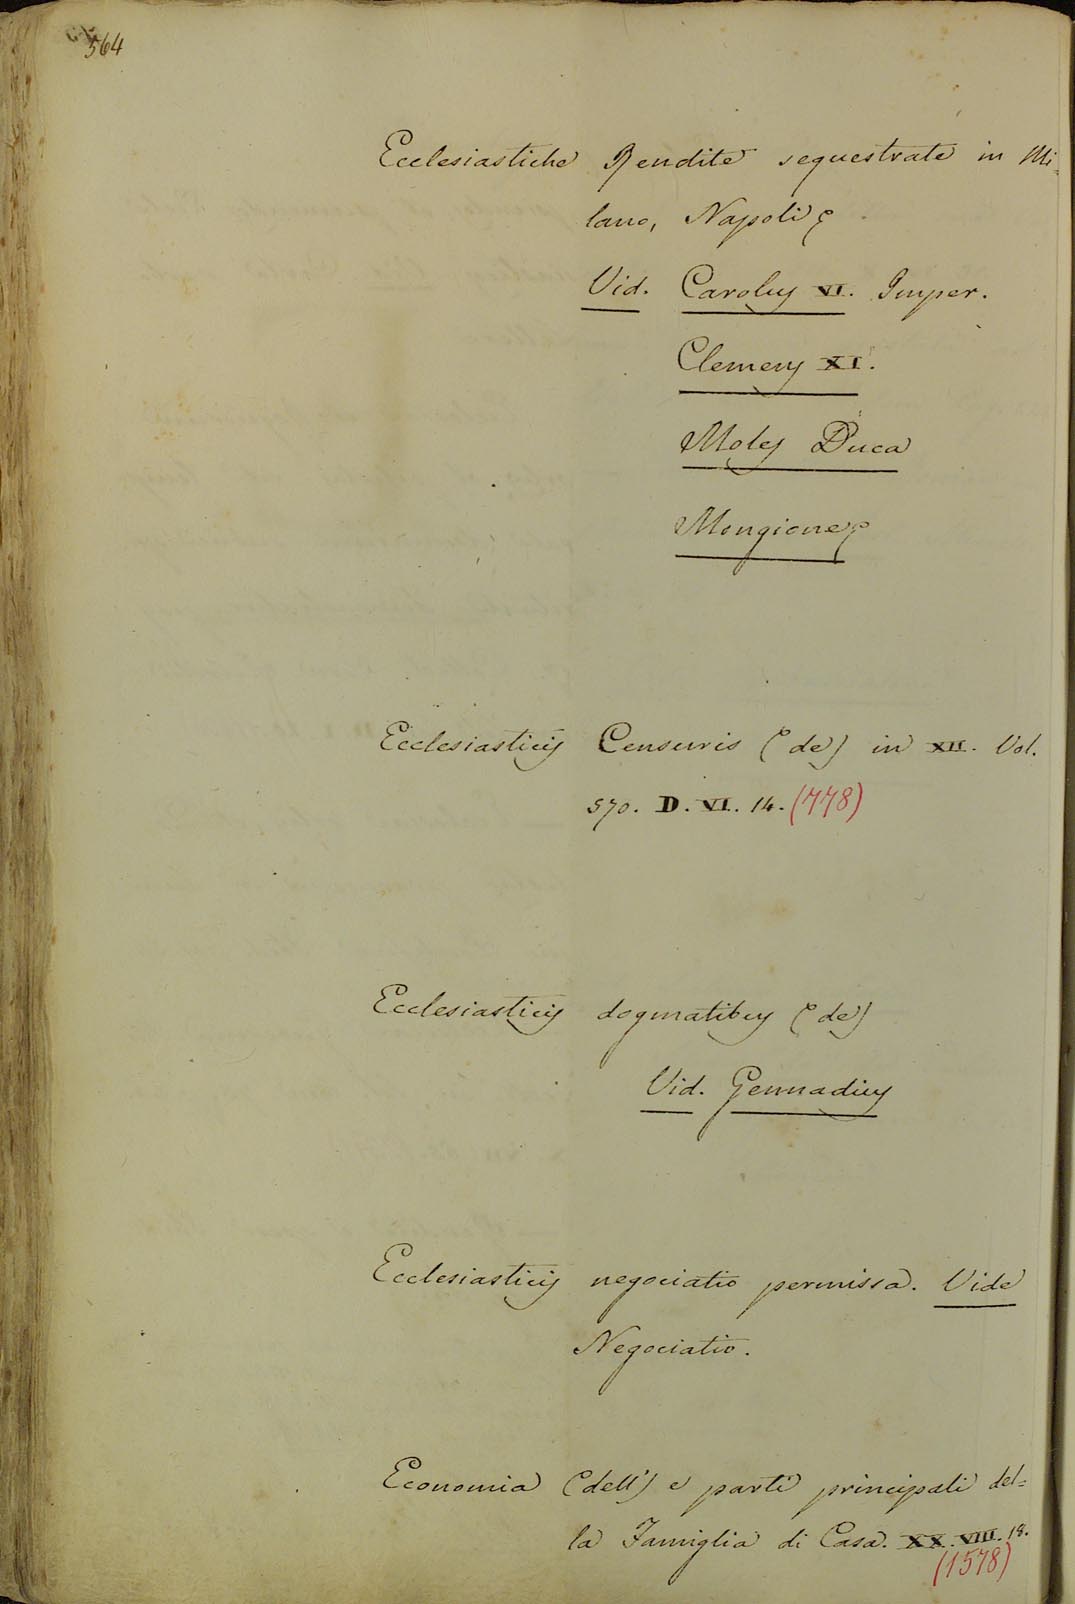 564
Ecclesiastiche Rendite sequestrate in Mi-
lano, Napoli
Vid. Carolus VI. Imper.
Clemens XI.
Moles Duca
Mongione
Ecclesiasticis Censuris (de) in XII. Vol.
570. D. VI. 14. (778)
Ecclesiasticis dogmatibus (de)
Vid. Gennadius
Ecclesiasticis negociatio permissa. Vide
Negociatio.
Economia (dell') e parti principali del-
la Famiglia di Casa. XX. VIII. 18.
(1578)